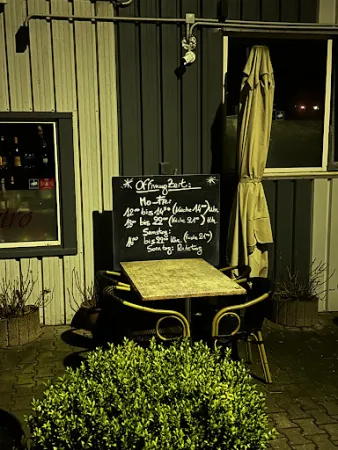 Öffnungszeit:
Mo-Fr:
12⁰⁰ bis 14³⁰ (Küche 14⁰⁰) Uhr.
18⁰⁰ bis 22⁰⁰ (Küche 21⁰⁰) Uhr.
Samstag:
18⁰⁰ bis 22⁰⁰ Uhr. (Küche 21⁰⁰)
Sonntag: Ruhetag
tro